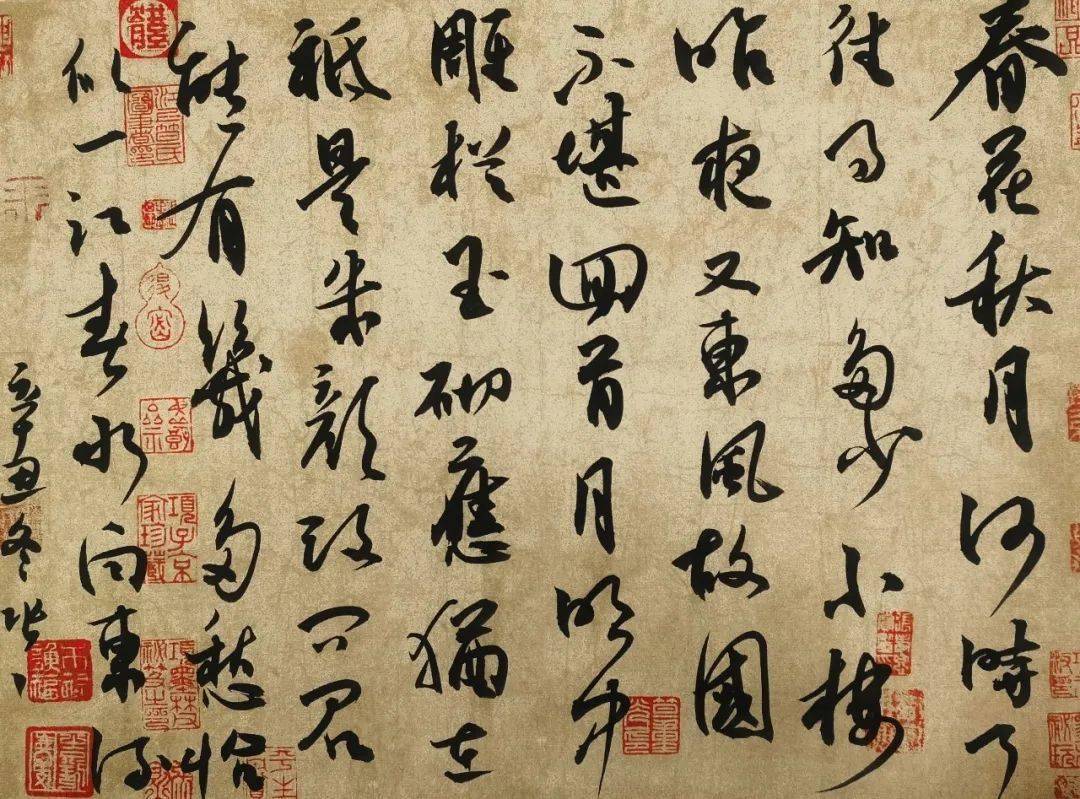 春花秋月何時了
往事知多少小樓
昨夜又東風故國
不堪回首月明中
雕欄玉砌應猶在
祗是朱顏改問君
能有幾多愁恰
似一江春水向東流
辛丑冬
項子京
家珍藏